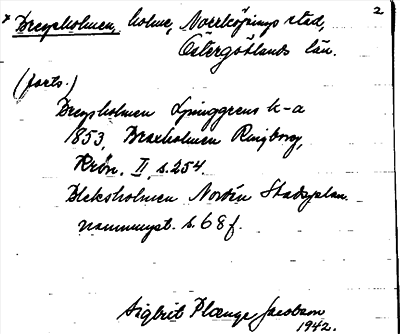 * Brexholmen, holme, Norrköpings stad, 2
Östergötlands län.
(forts.)
Brexholmen Ljunggrens k-a
1853, Braxholmen Ringborg,
Krön. II, s. 254
Bleksholmen Nordén Stadsplan.
namnmyst. s. 68 f.
Sigbrit Plænge Jacobson
1942.